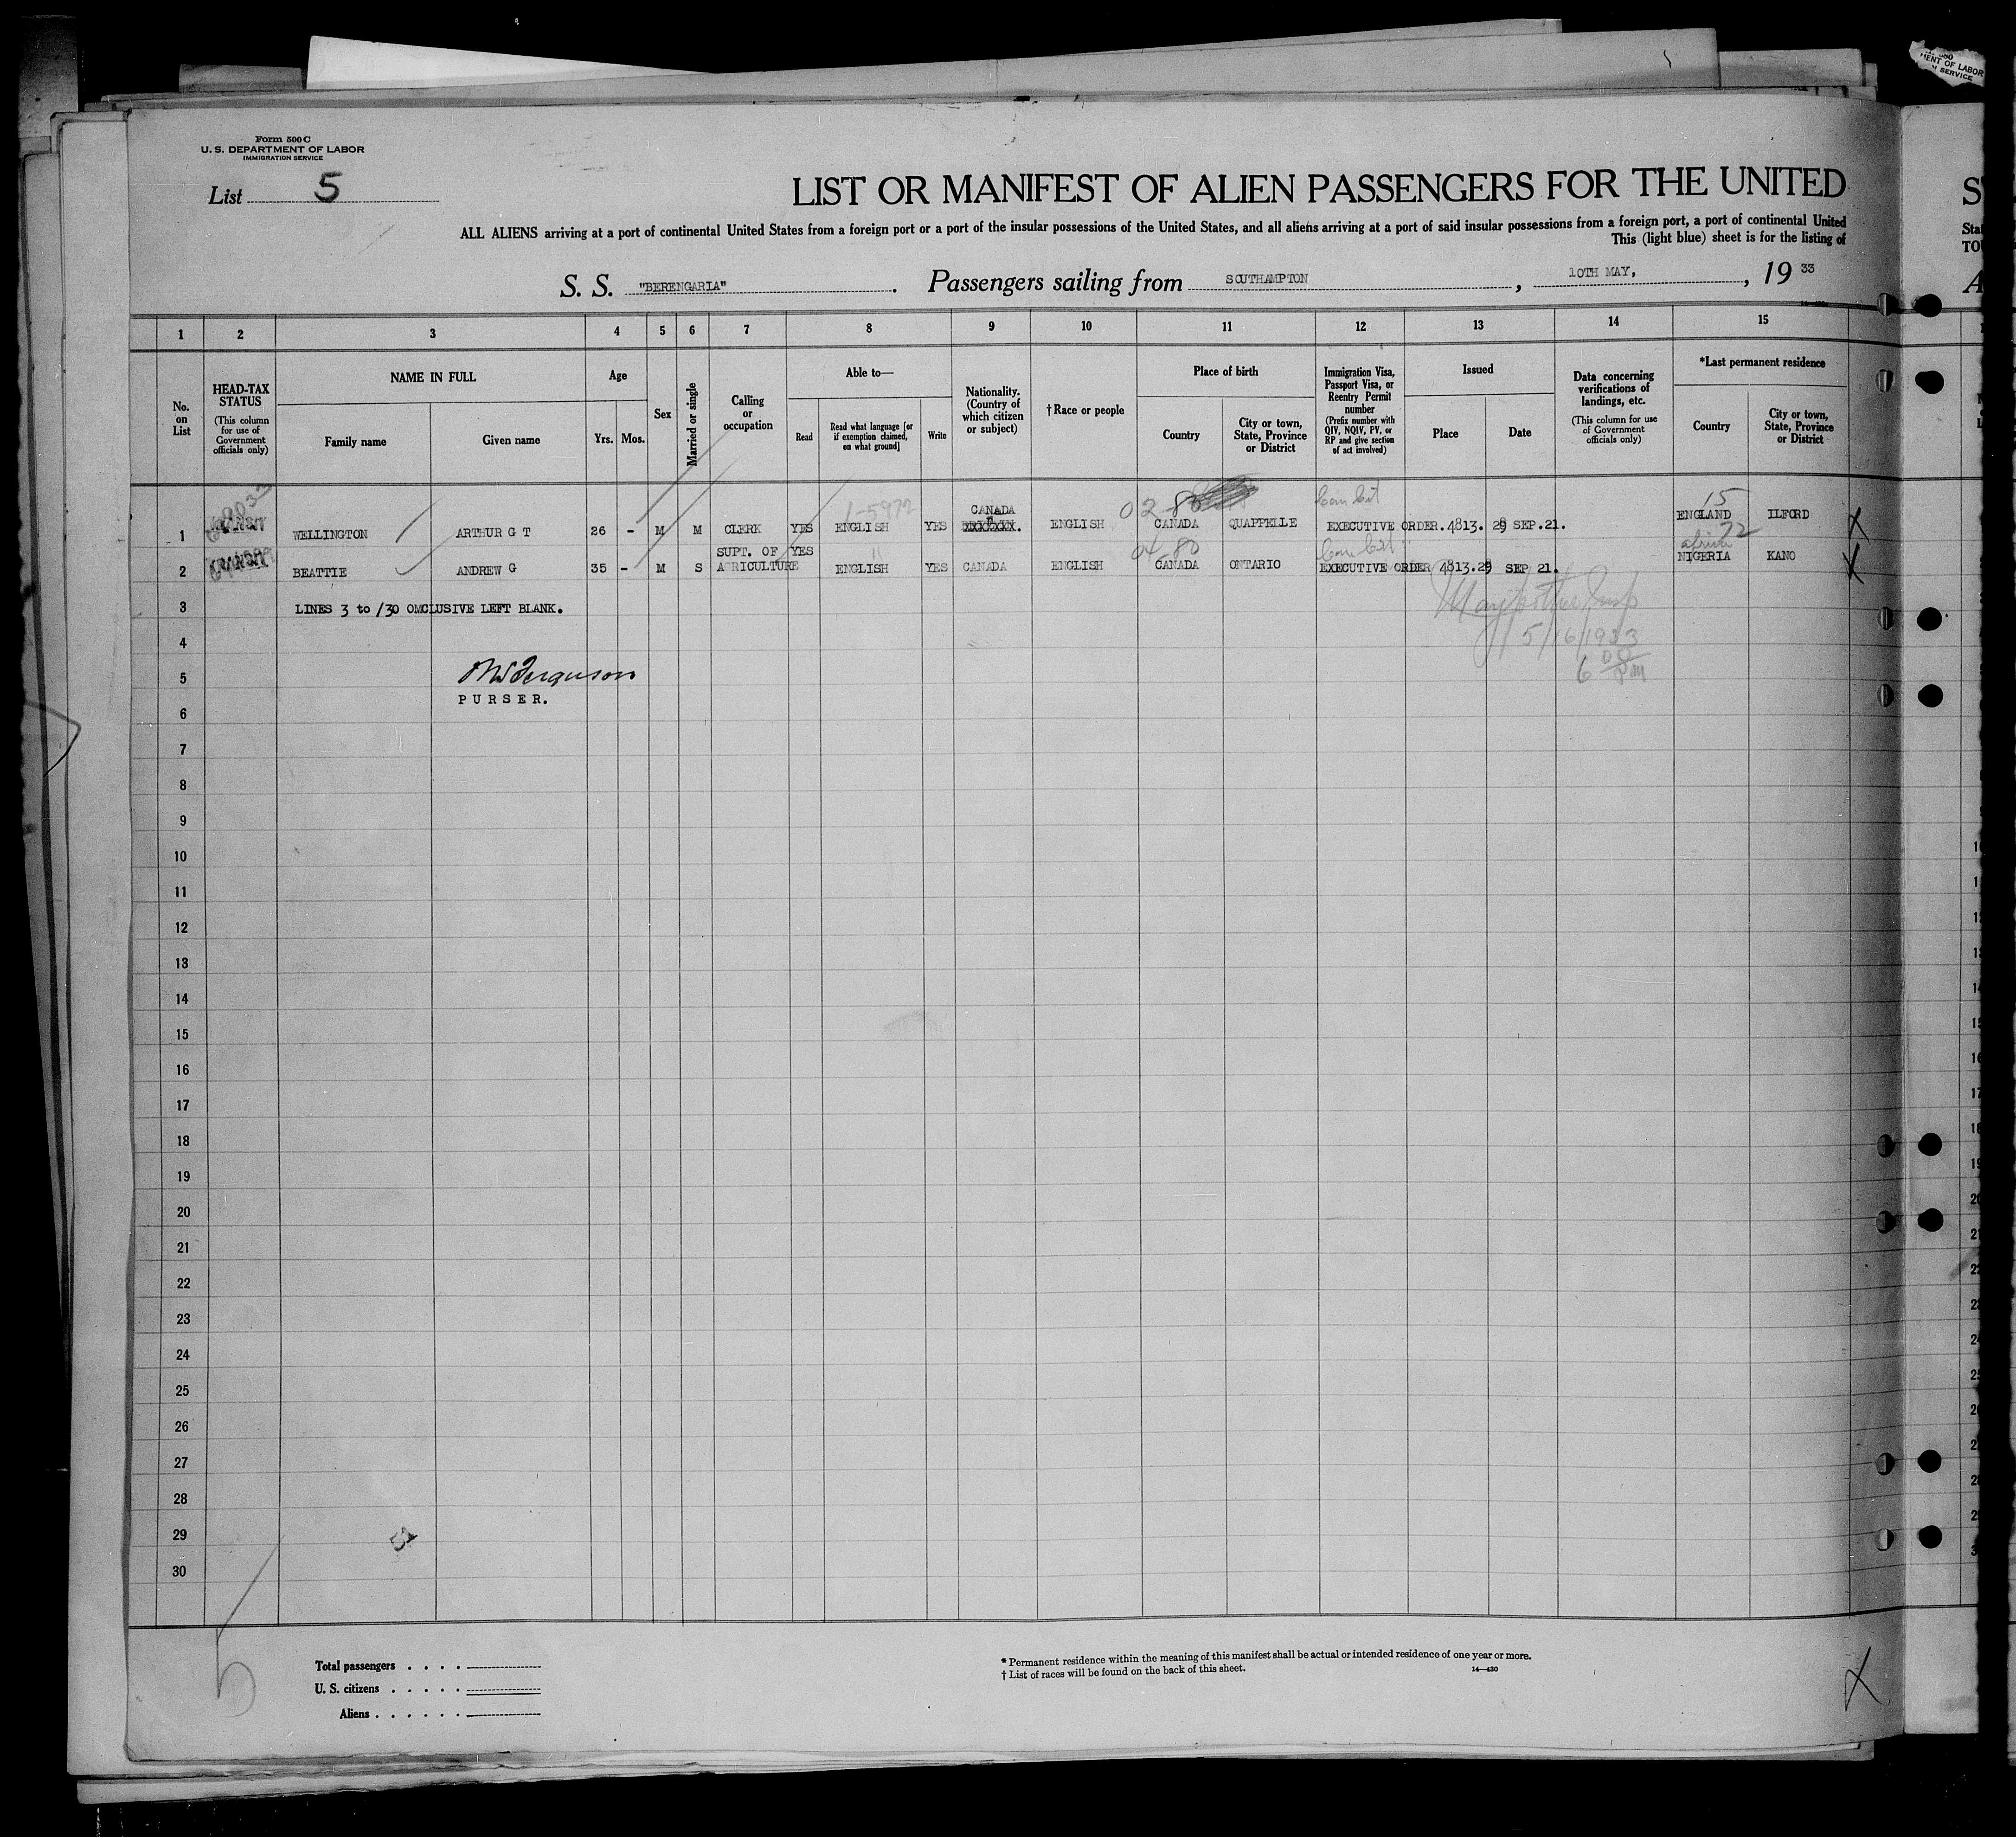 Form 500 C
U. S. DEPARTMENT OF LABOR
IMMIGRATION SERVICE
List 5
LIST OR MANIFEST OF ALIEN PASSENGERS FOR THE UNITED
ALL ALIENS arriving at a port of continental United States from a foreign port or a port of the insular possessions of the United States, and all aliens arriving at a port of said insular possessions from a foreign port, a port of continental United
This (light blue) sheet is for the listing of
S. S. "BERENGARIA" . Passengers sailing from SOUTHAMPTON , 10TH MAY, , 19 33
1 2 3 4 5 6 7 8 9 10 11 12 13 14 15
No. on List
HEAD-TAX STATUS
(This column for use of Government officials only)
NAME IN FULL
Family name Given name
Age
Yrs. Mos.
Sex
Married or single
Calling or occupation
Able to—
Read
Read what language [or if exemption claimed, on what ground]
Write
Nationality. (Country of which citizen or subject)
†Race or people
Place of birth
Country
City or town, State, Province or District
Immigration Visa, Passport Visa, or Reentry Permit number
(Prefix number with QIV, NQIV, PV, or RP and give section of act involved)
Issued
Place Date
Data concerning verifications of landings, etc.
(This column for use of Government officials only)
*Last permanent residence
Country
City or town, State, Province or District
1-5972 CANADA 02-80 15
1 WELLINGTON ARTHUR G T 26 - M M CLERK YES ENGLISH YES XXXXXXX. ENGLISH CANADA QUAPPELLE EXECUTIVE ORDER.4813. 29 SEP.21. ENGLAND ILFORD X
SUPT. OF YES " 04 80 72
2 BEATTIE ANDREW G 35 - M S AGRICULTURE ENGLISH YES CANADA ENGLISH CANADA ONTARIO EXECUTIVE ORDER 4813.29 SEP 21. NIGERIA KANO X
3 LINES 3 to /30 OMCLUSIVE LEFT BLANK.
4 5/16/1933
5 Ferguson 6 00 pm
PURSER.
6
7
8
9
10
11
12
13
14
15
16
17
18
19
20
21
22
23
24
25
26
27
28
29
30
5
Total passengers . . . .
U. S. citizens . . . . .
Aliens . . . . . .
* Permanent residence within the meaning of this manifest shall be actual or intended residence of one year or more.
† List of races will be found on the back of this sheet.
14—430
X